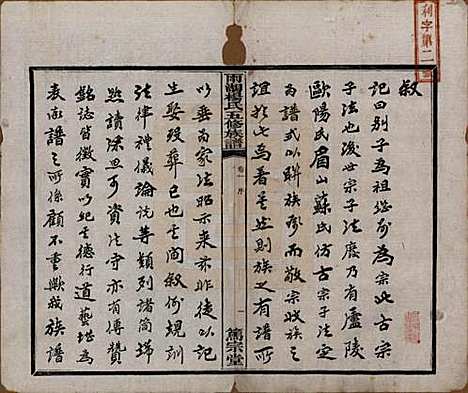 利字第二
敘
記曰别子為祖繼別為宗此古宗
子法也後世宗子法廢乃有廬陵
歐陽氏眉山蘇氏仿古宗子法定
為譜式以聯族彥而敬宗收族之
誼於是乎著焉然則族之有譜所
雨湖曹氏五修族譜
卷一 序
一
篤宗堂
以垂為家法昭示來茲非徒以記
生娶歿葬已也其間敘例規訓
法律禮儀論說等類列諸簡端
煦讀深思可資法守亦有傳贊
銘誌皆徵實以紀其德行道藝堪為
表率譜之所係顧不重歟我族譜